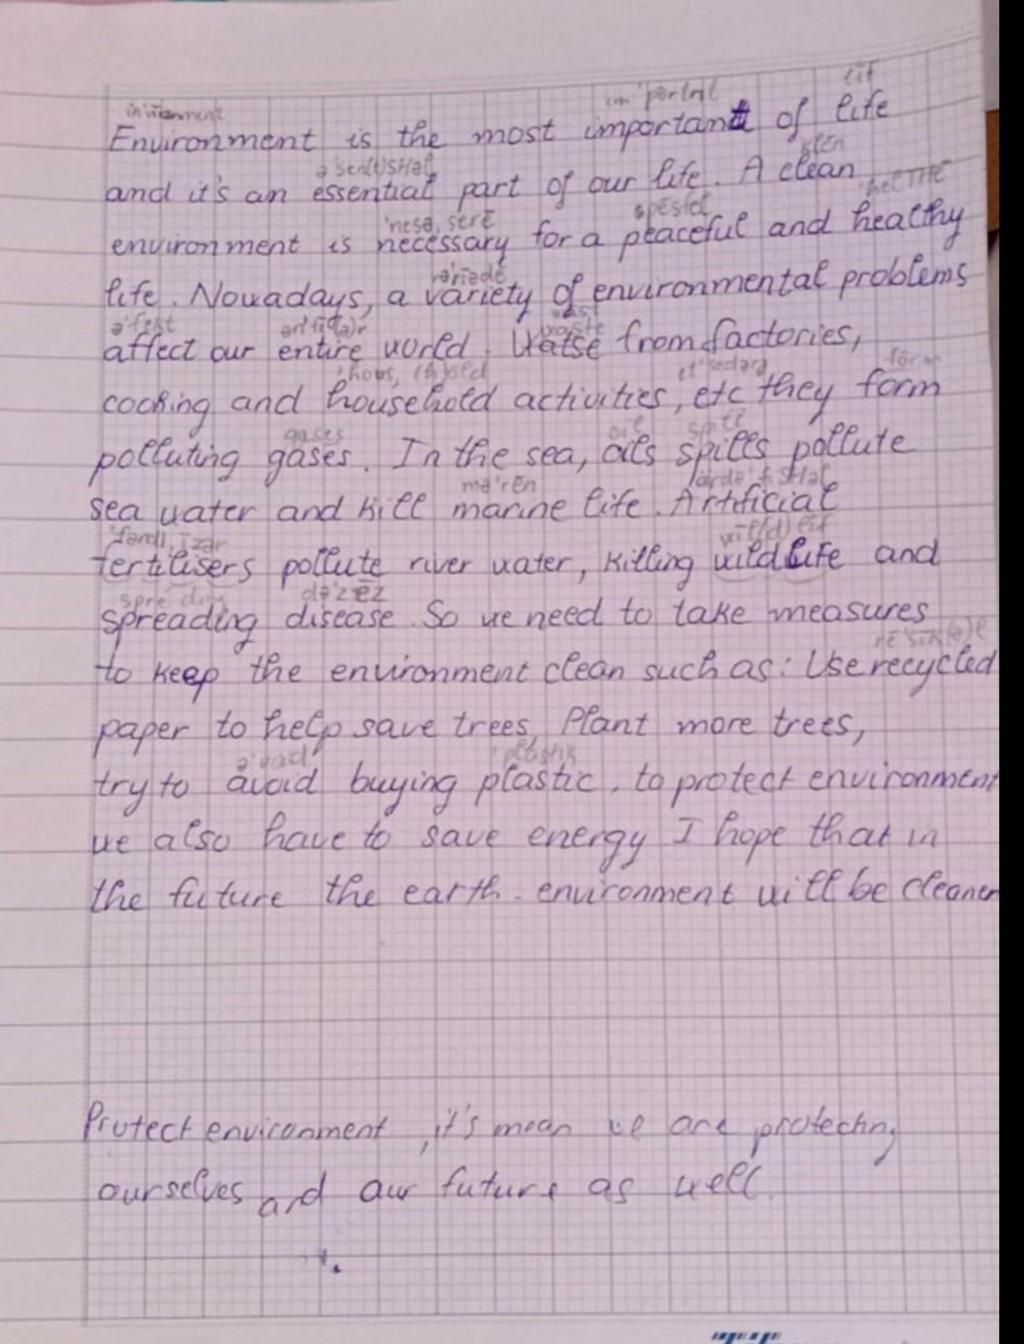 Environment is the most important of life
and it's an essential part of our life. A clean
environment is necessary for a peaceful and healthy
life. Nowadays, a variety of environmental problems
affect our entire world. Watse from factories,
cooking and household activities, etc they form
polluting gases. In the sea, oils spills pollute
sea water and kill marine life. Artificial
fertilisers pollute river water, killing wildlife and
spreading disease. So we need to take measures
to keep the environment clean such as: Use recycled
paper to help save trees, Plant more trees,
try to avoid buying plastic, to protect environment
we also have to save energy I hope that in
the future the earth. environment will be cleaner
Protect environment, it's mean we are protecting
ourselves and our future as well.